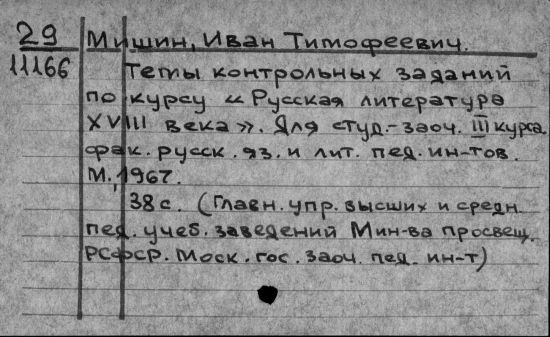 29 Мишин, Иван Тимофеевич.
11166 Темы контрольных заданий
по курсу "Русская литература
XVIII века". Для студ.-заоч. III курса
фак. русск. яз. и лит. пед. ин-тов.
М., 1967.
38 с. (Главн. упр. высших и средн.
пед. учеб. заведений Мин-ва просвещ.
РСФСР. Моск. гос. заоч. пед. ин-т)